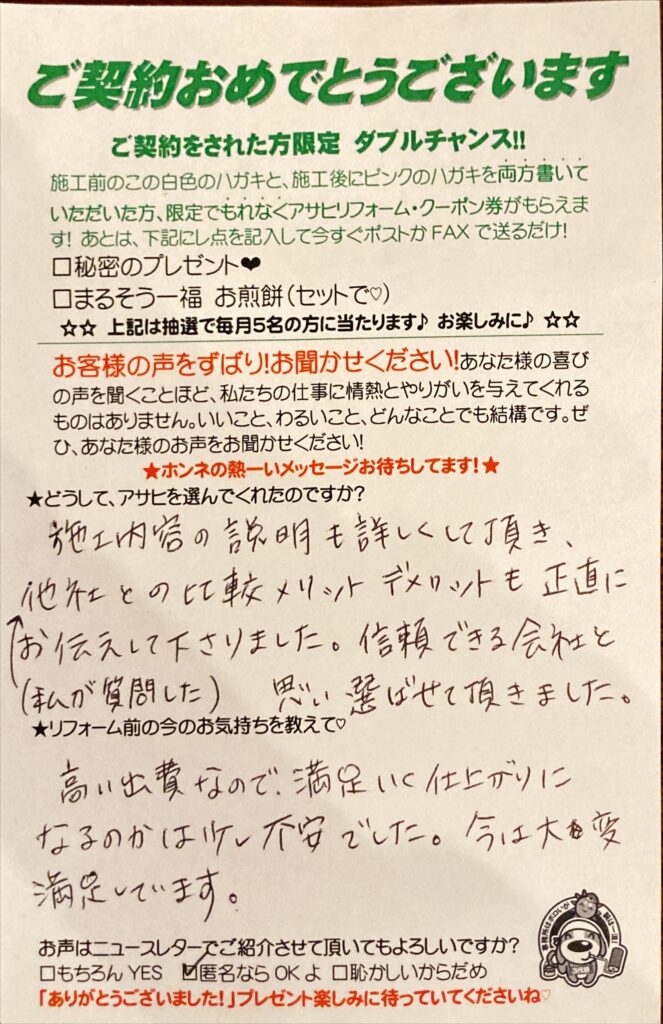 ご契約おめでとうございます
ご契約をされた方限定 ダブルチャンス!!
施工前のこの白色のハガキと、施工後にピンクのハガキを両方書いて
いただいた方、限定でもれなくアサヒリフォーム・クーポン券がもらえま
す! あとは、下記にレ点を記入して今すぐポストか FAX で送るだけ!
□秘密のプレゼント❤
□まるそう一福 お煎餅(セットで♡)
☆☆ 上記は抽選で毎月5名の方に当たります♪ お楽しみに♪ ☆☆
お客様の声をずばり!お聞かせください!あなた様の喜び
の声を聞くことほど、私たちの仕事に情熱とやりがいを与えてくれる
ものはありません。いいこと、わるいこと、どんなことでも結構です。ぜ
ひ、あなた様のお声をお聞かせください!
★ホンネの熱ーいメッセージお待ちしてます!★
★どうして、アサヒを選んでくれたのですか?
施工内容の説明も詳しくして頂き、
他社との比較メリットデメリットも正直に
お伝えして下さりました。信頼できる会社と
(私が質問した) 思い選ばせて頂きました。
★リフォーム前の今のお気持ちを教えて♡
高い出費なので、満足いく仕上がりに
なるのかは少し不安でした。今は大変
満足しています。
お声はニュースレターでご紹介させて頂いてもよろしいですか?
□もちろん YES ☑匿名なら OK よ □恥かしいからだめ
「ありがとうございました!」プレゼント楽しみに待っていてくださいね♡